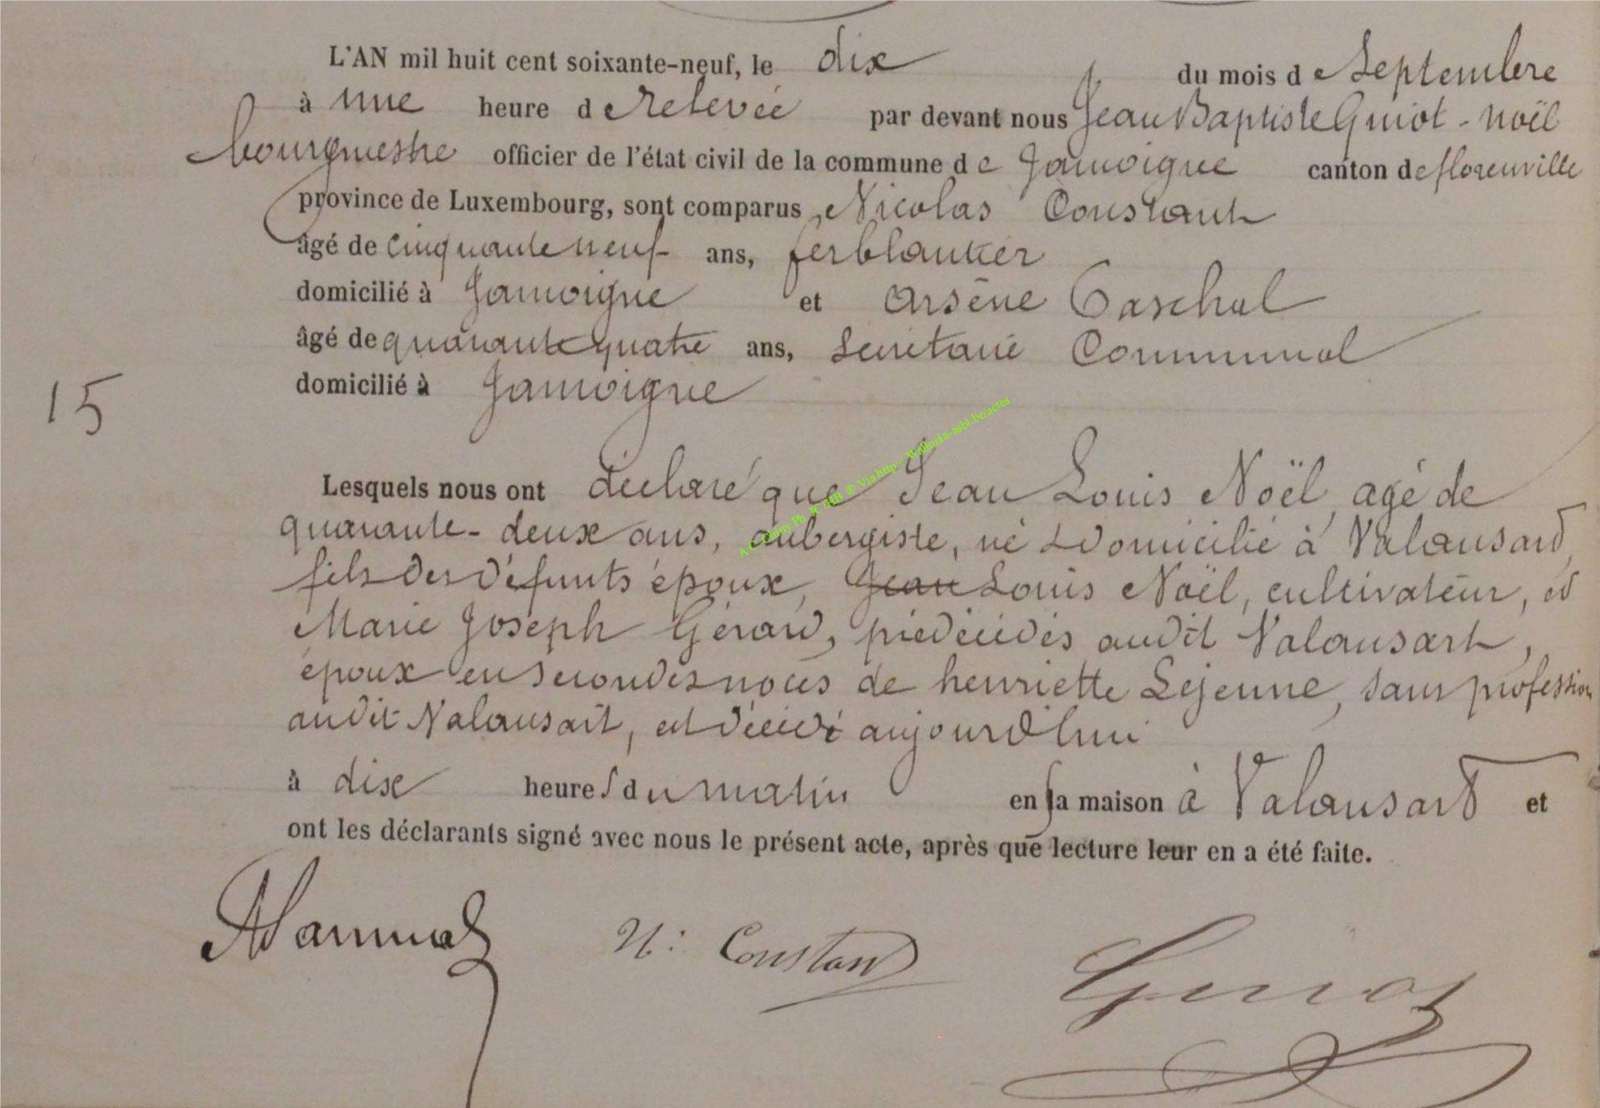 L'AN mil huit cent soixante-neuf, le dix du mois de Septembre
à une heure de relevée par devant nous Jean Baptiste Guiot-Noël
bourgmestre officier de l'état civil de la commune de Jamoigne canton de florenville
province de Luxembourg, sont comparus Nicolas Constant
âgé de cinquante neuf ans, ferblantier
domicilié à Jamoigne et Arsène
âgé de quarante quatre ans, Secrétaire Communal
domicilié à Jamoigne
15
Lesquels nous ont déclaré que Jean Louis Noël, agé de
quarante-deux ans, aubergiste, né & domicilié à Valansard,
fils des défunts époux, Jean Louis Noël, cultivateur, et
Marie Joseph Gérard, prédécédés audit Valansart,
époux en secondes noces de henriette Lejeune, sans profession
audit Valansart, est décédé aujourd'hui
à dix heures du matin en sa maison à Valansard et
ont les déclarants signé avec nous le présent acte, après que lecture leur en a été faite.
N: Constant